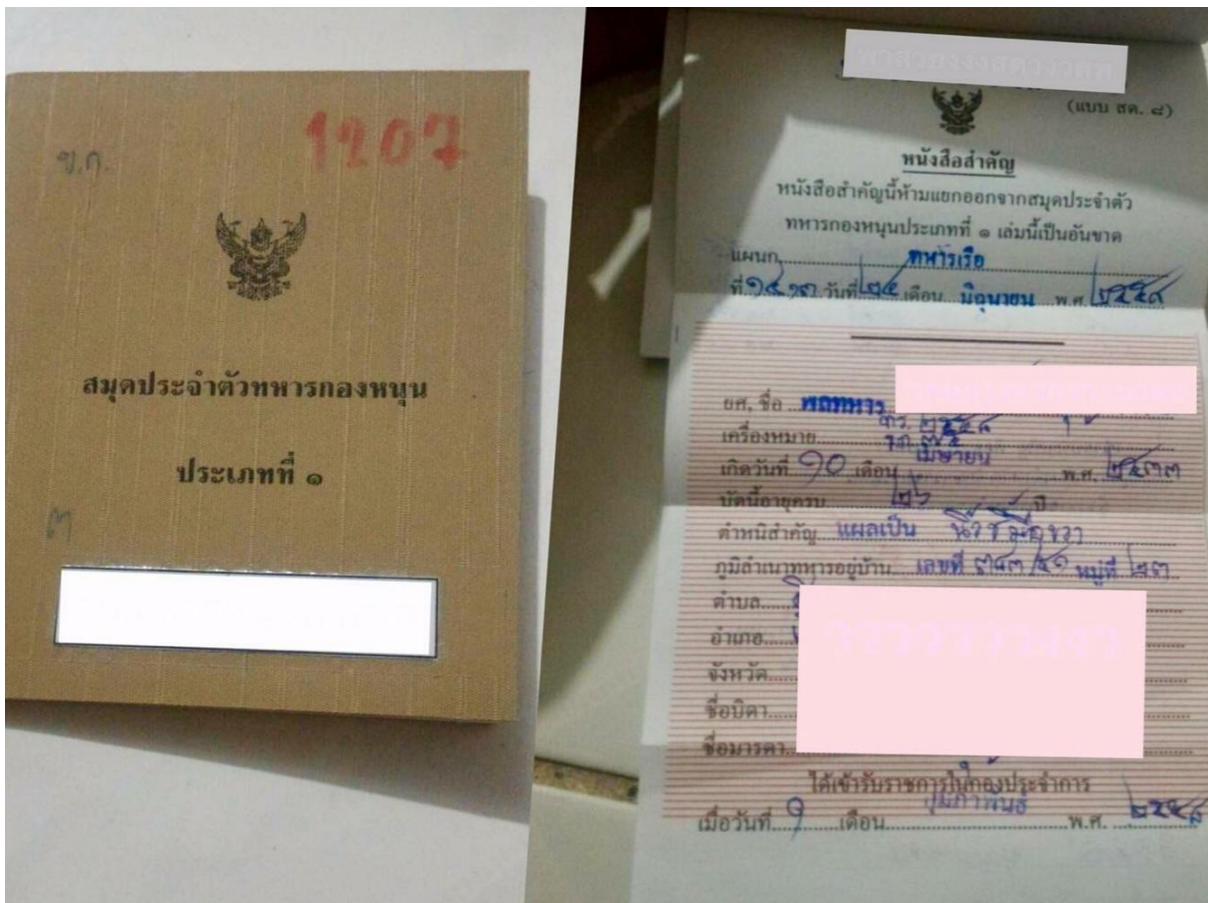 ข.ก.
1207
สมุดประจำตัวทหารกองหนุน
ประเภทที่ ๑
๓
(แบบ สด. ๘)
หนังสือสำคัญ
หนังสือสำคัญนี้ห้ามแยกออกจากสมุดประจำตัว
ทหารกองหนุนประเภทที่ ๑ เล่มนี้เป็นอันขาด
แผนก ทหารเรือ
ที่ วันที่ ๒๕ เดือน มิถุนายน พ.ศ. ๒๕๕๙
ยศ, ชื่อ พลทหาร
เครื่องหมาย ทร. ๒๕๕๘
เกิดวันที่ ๑๐ เดือน เมษายน พ.ศ. ๒๕๓๓
บัดนี้อายุครบ ๒๖ ปี
ตำหนิสำคัญ แผลเป็น
ภูมิลำเนาทหารอยู่บ้าน เลขที่ ๓๔๓/๕๑ หมู่ที่ ๒๓
ตำบล
อำเภอ
จังหวัด
ชื่อบิดา
ชื่อมารดา
ได้เข้ารับราชการในกองประจำการ
เมื่อวันที่ ๑ เดือน กุมภาพันธ์ พ.ศ. ๒๕๕๘